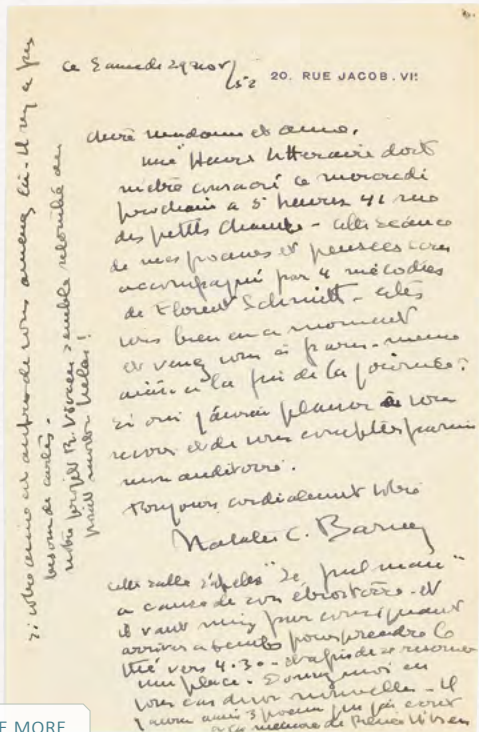 ce Samedi 29 nov/52
20. RUE JACOB. VIᵉ
chère madame et amie,
une "Heure littéraire doit
m'être consacré ce mercredi
prochain a 5 heures 41 rue
des petits Champs - cette séance
de mes poèmes et pensées sera
accompagné par 4 mélodies
de Florent Schmitt - êtes
vous bien en ce moment
et venez vous à paris - meme
à la fin de la journée?
si oui j'aurai plaisir à vous
revoir et de vous compter parmi
mon auditoire.
Toujours cordialement votre
Natalie C. Barney
cette salle s'appelle "Le pulman"
a cause de son étroitesse - et
il vaut mieux par conséquent
arriver a temps pour prendre le
thé vers 4.30 - et afin de se reserver
une place - Donnez moi en
tous cas de vos nouvelles - Il
y aura aussi 3 poèmes que j'ai écrit
a la mémoire de Renée Vivien
si votre amie est auprès de vous amenez la - Il n'y a pas
besoin de cartes -
notre projet R. Vivien semble retombé au
point mort hélas!
E MORE